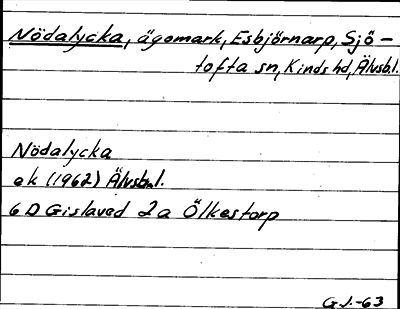 Nödalycka, ägomark, Esbjörnarp, Sjö-
tofta sn, Kinds hd, Älvsb.l.
Nödalycka
ek (1962) Älvsb.l.
6 D Gislaved 2a Ölkestorp
G.J.-63